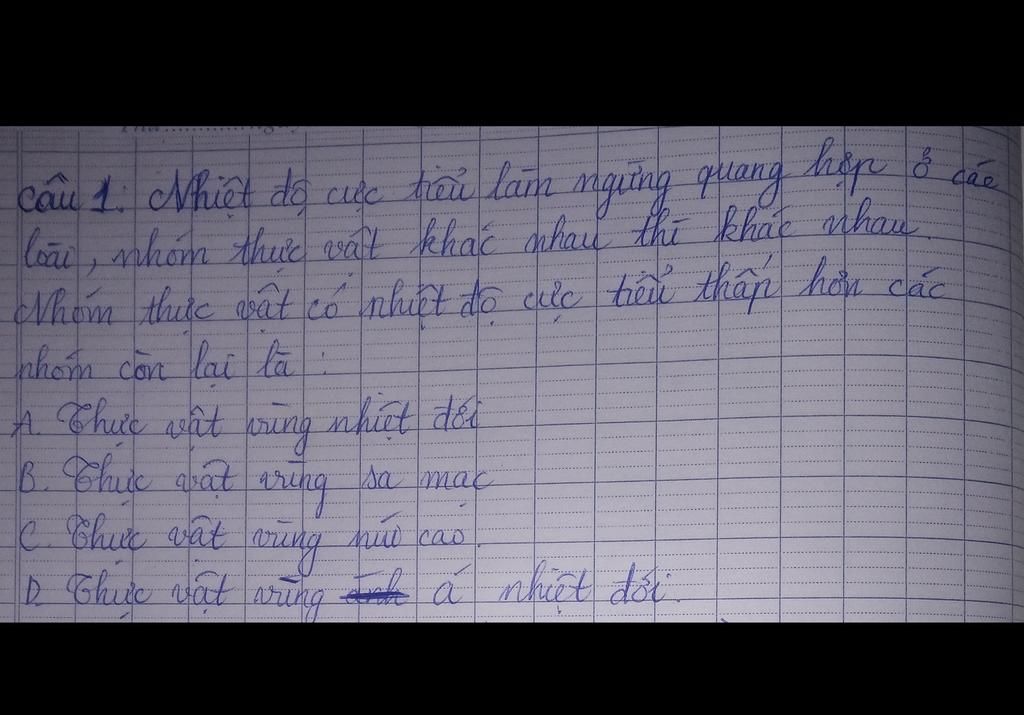 Câu 1. Nhiệt độ cực tiểu làm ngừng quang hợp ở các
loài, nhóm thực vật khác nhau thì khác nhau.
Nhóm thực vật có nhiệt độ cực tiểu thấp hơn các
nhóm còn lại là :
A. Thực vật vùng nhiệt đới
B. Thực vật vùng sa mạc
C. Thực vật vùng núi cao.
D. Thực vật vùng á nhiệt đới.